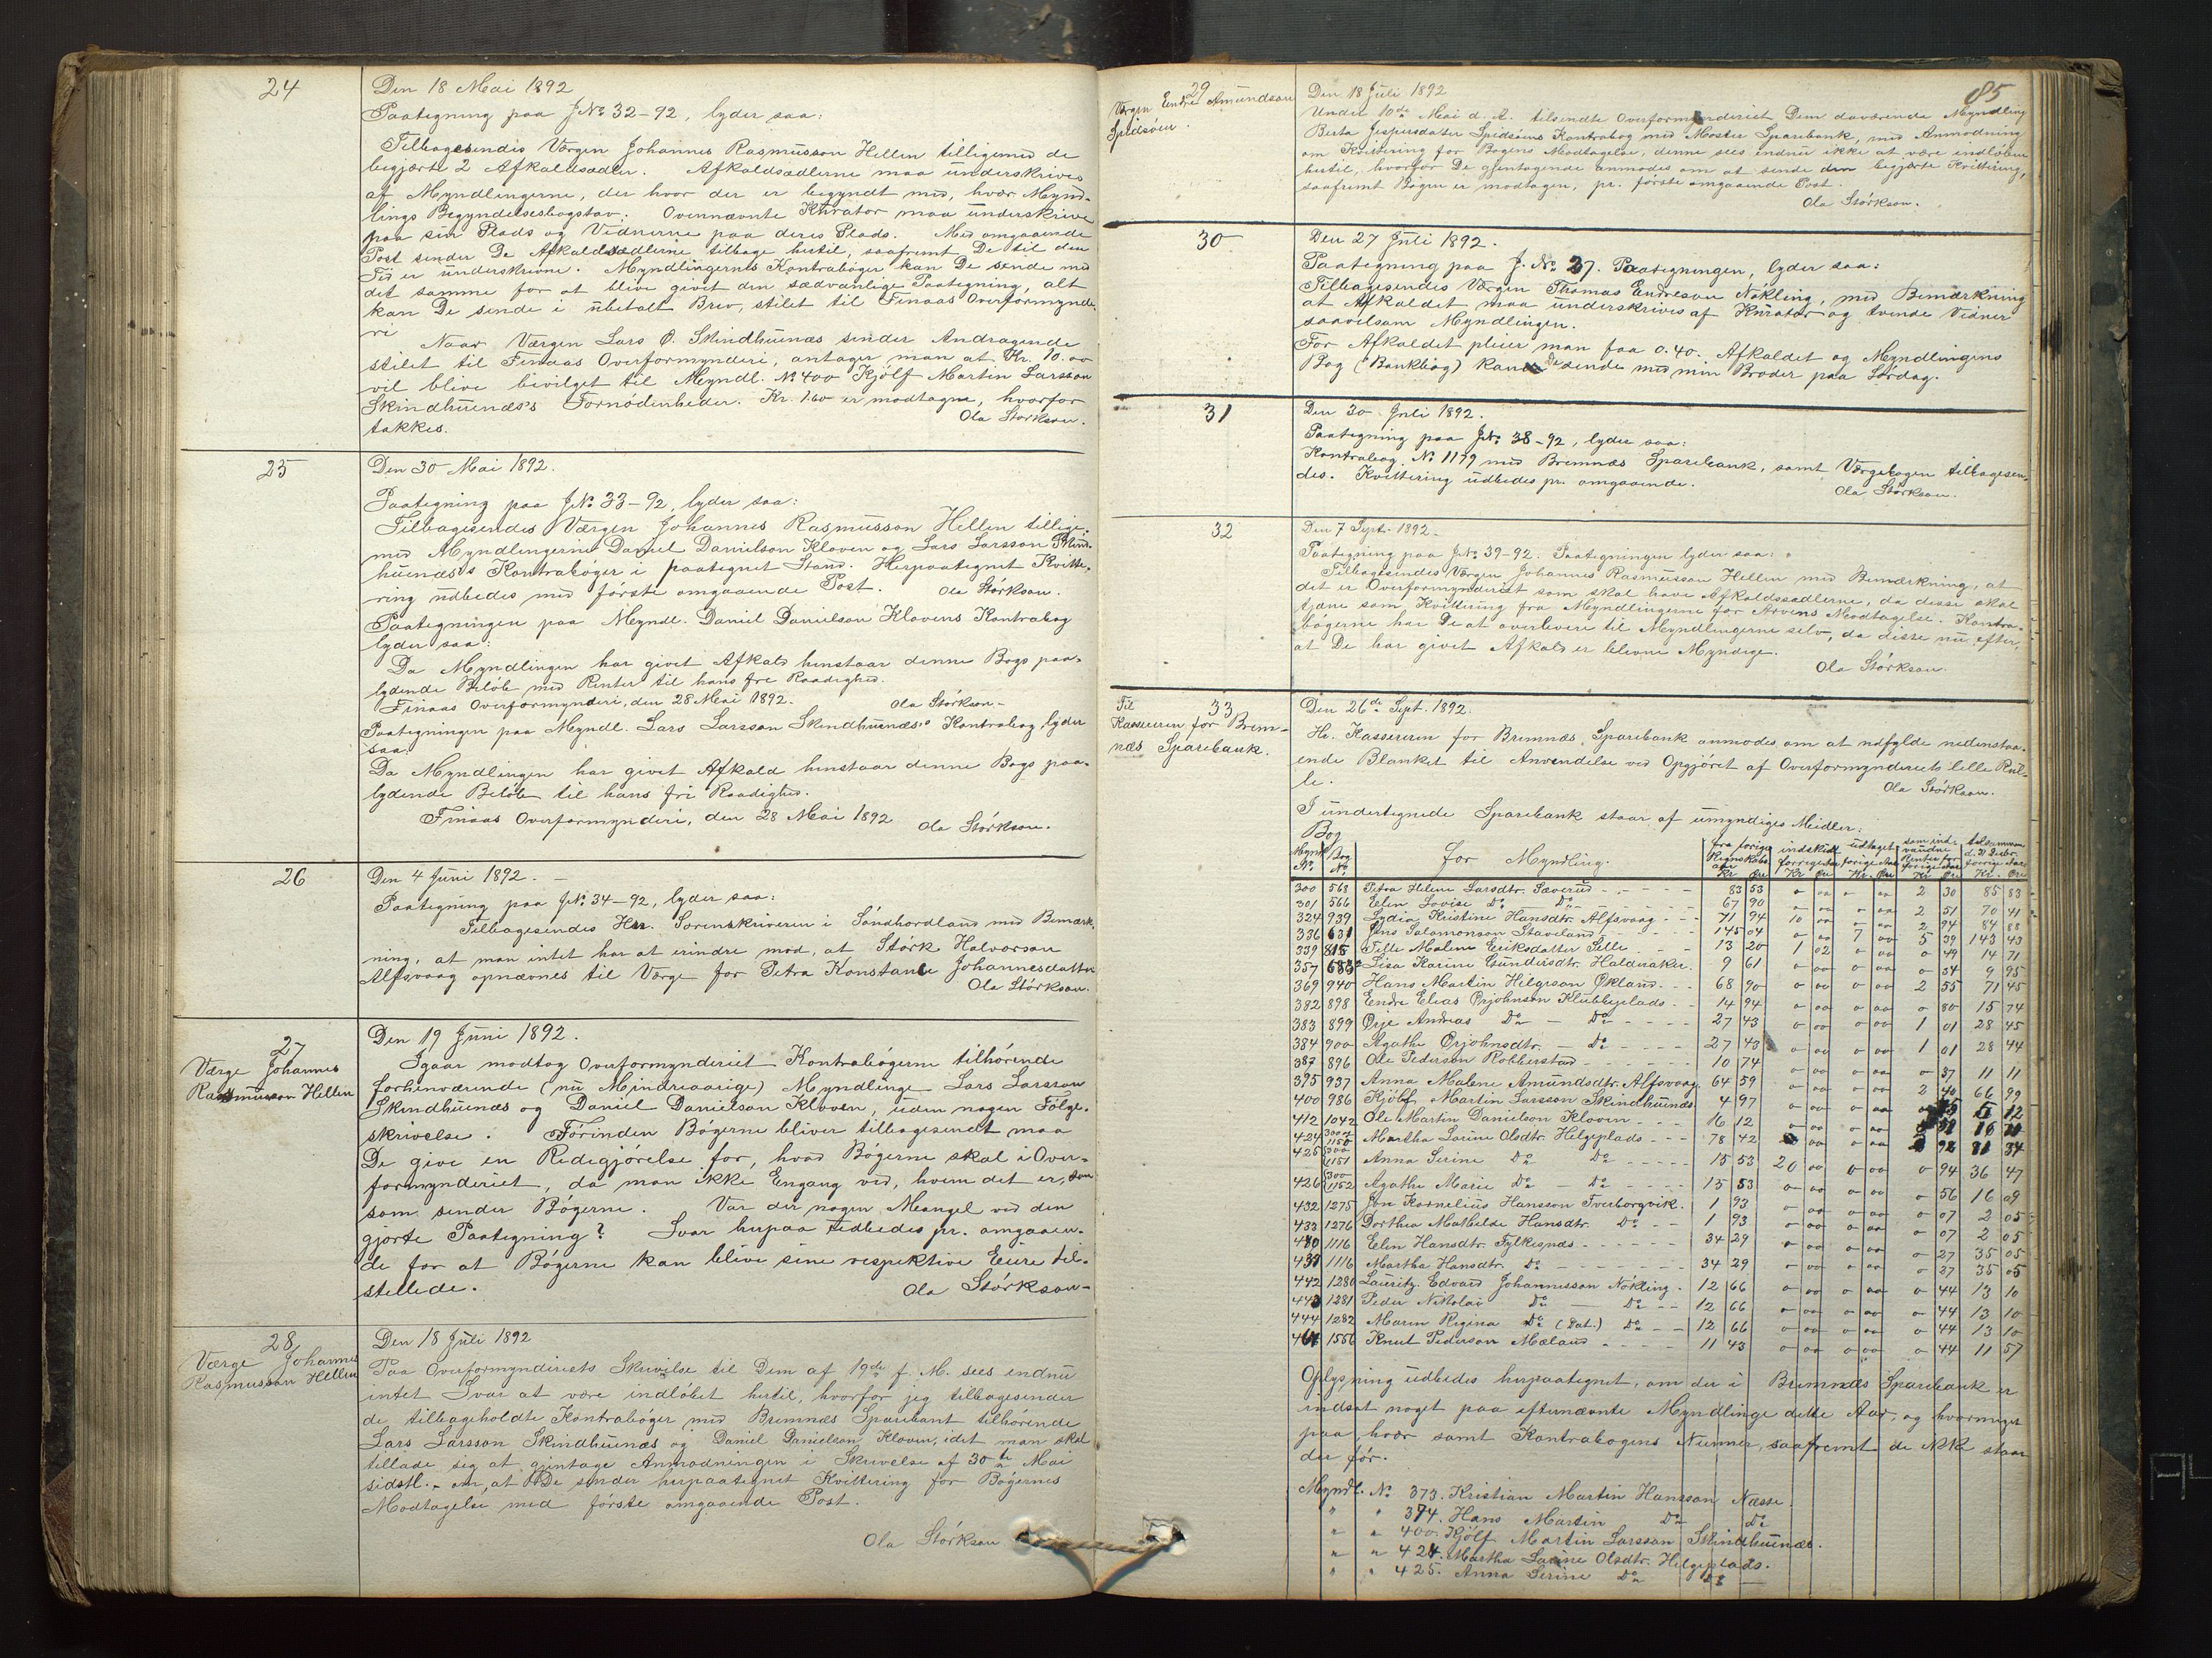 24
Den 18 Mai 1892
Paategning paa J.No 32-92, lyder saa:
Tilbagesendes Værgen Johannes Rasmusson Hellen tilligemed de
begjærte 2 Afkaldsædler. Afkaldsædlerne maa underskrives
af Myndlingerne, der hvor der er begyndt med, hver Mynd-
lings Begyndelsesbogstav. Overnævnte Kurator maa underskrive
paa sin Plads og Vidnerne paa deres Plads. Med omgaaende
Post sender De Afkaldsædlerne tilbage hertil, saafremt De til den
Tid er underskrevne. Myndlingernes Kontrabøger kan De sende med
det samme for at blive givet den sædvanlige Paategning, alt
kan De sende i ubetalt Brev, stilet til Finaas Overformynde-
ri
Naar Værgen Lars O. Skindhuenæs sender Andragende
stilet til Finaas Overformynderi, antager man at Kr. 10.00
vil blive bevilget til Myndl. No 400 Kjølf Martin Larsson
Skindhuenæs's Fornødenheder. Kr. 1.60 er modtagne, hvorfor
takkes. Ola Størkson.
25
Den 30 Mai 1892.
Paategning paa J.No 33-92, lyder saa:
Tilbagesendes Værgen Johannes Rasmusson Hellen tillige-
med Myndlingerne Daniel Danielson Kloven og Lars Larsson Skind-
huenæs's Kontrabøger i paategnet Stand. Herpaategnet Kvitte-
ring udbedes med første omgaaende Post. Ola Størkson.
Paategningen paa Myndl. Daniel Danielson Klovens Kontrabog
lyder saa:
Da Myndlingen har givet Afkald henstaar denne Bogs paa-
lydende Beløb med Renter til hans frie Raadighed.
Finaas Overformynderi, den 28 Mai 1892. Ola Størkson-
Paategningen paa Myndl. Lars Larsson Skindhuenæs's Kontrabog lyder
saa:
Da Myndlingen har givet Afkald henstaar denne Bogs paa-
lydende Beløb til hans fri Raadighed.
Finaas Overformynderi, den 28 Mai 1892 Ola Størkson.
26
Den 4 Juni 1892. -
Paategning paa J.No 34-92, lyder saa:
Tilbagesendes Hr. Sorenskriveren i Søndhordland med Bemærk-
ning, at man intet har at erindre mod, at Størk Halvorson
Alfsvaag opnævnes til Værge for Petra Konstance Johannesdatter
Ola Størkson.
27
Værge Johannes
Rasmusson Hellen
Den 19 Juni 1892.
Igaar modtog Overformynderiet Kontrabøgerne tilhørende
forhenværende (nu Mindreaarige) Myndlinge Lars Larsson
Skindhuenæs og Daniel Danielson Kloven, uden nogen Følge-
skrivelse. Førinden Bøgerne bliver tilbagesendt maa
De give en Redegjørelse for, hvad Bøgerne skal i Over-
formynderiet, da man ikke Engang ved, hvem det er, som
som sender Bøgerne. Var der nogen Mangel ved den
gjorte Paategning? Svar herpaa udbedes pr. omgaaen-
de for at Bøgerne kan blive sine respektive Eiere til-
stillede. Ola Størkson-
28
Værge Johannes
Rasmusson Hellen
Den 18 Juli 1892
Paa Overformynderiets Skrivelse til Dem af 19de f. M. sees endnu
intet Svar at være indløbet hertil, hvorfor jeg tilbagesender
de tilbageholdte Kontrabøger med Bremnæs Sparebank tilhørende
Lars Larsson Skindhuenæs og Daniel Danielson Kloven, idet man skal
tillade seg at gjentage Anmodningen i Skrivelse af 30te Mai
sidstl. om, at De sender herpaategnet Kvittering for Bøgernes
Modtagelse med første omgaaende Post.
Ola Størkson
85
29
Værgen Endre Amundson
Spidsøen.
Den 18 Juli 1892
Under 10de Mai d. A. tilsendte Overformynderiet Dem daværende Myndling
Berta Jespersdatter Spidsøens Kontrabog med Moster Sparebank, med Anmodning
om Kvittering for Bogens Modtagelse, denne sees endnu ikke at være indløben
hertil, hvorfor De gjentagende anmodes om at sende den begjærte Kvittering,
saafremt Bogen er modtagen, pr. første omgaaende Post.
Ola Størkson.
30
Den 27 Juli 1892.
Paategning paa J. No 37. Paategningen, lyder saa:
Tilbagesendes Værgen Thomas Endreson Nøkling, med Bemærkning
at Afkaldet maa underskrives af Kurator og tvende Vidner
saavelsom Myndlingen.
For Afkaldet pleier man faa 0.40. Afkaldet og Myndlingens
Bog (Bankbog) kan De sende med min Broder paa Lørdag.
31
Den 30 Juli 1892.
Paategning paa J.No 38-92, lyder saa:
Kontrabog No 1179 med Bremnæs Sparebank, samt Værgebogen tilbagesen-
des. Kvittering udbedes pr. omgaaende. Ola Størkson.
32
Den 7 Sept. 1892.
Paategning paa J.No 39-92. Paategningen lyder saa:
Tilbagesendes Værgen Johannes Rasmusson Hellen med Bemærkning, at
det er Overformynderiet som skal have Afkaldssedlerne, da disse skal
tjene som Kvittering fra Myndlingerne for Arvens Modtagelse. Kontra-
bøgerne har De at overlevere til Myndlingerne selv, da disse nu, efter,
at De har givet Afkald er blevne Myndige.
Ola Størkson.
Til 33
Kassereren for Brem-
næs Sparebank.
Den 26de Sept. 1892.
Hr. Kassereren for Bremnæs Sparebank anmodes om at udfylde nedenstaa-
ende Blanket til Anvendelse ved Opgjøret af Overformynderiets lille Rul-
le. Ola Størkson.
I undertegnede Sparebank staar af umyndiges Meidler:
Bog
Myndl No Bog No for Myndling. fra forige Regnskabs aar indskudt forrige Aar udtaget forige Aar som ind-vundne Renter for forige Aar
Kr Øre Kr Øre Kr. Øre Kr Øre Kr. Øre
300 568 Petra Helene Larsdtr. Sæverud - - - - 83 53 " oo " oo 2 30 85 83
301 566 Elen Lovise Do Do - - - - 67 90 " oo " oo 2 51 70 41
324 939 Lydia Kristine Hansdtr. Alfsvaag - - - 71 94 10 oo " oo 2 94 84 88
336 631 Jens Salamonson Staveland - - - - 145 04 o oo 7 oo 5 39 143 43
339 815 Tille Malene Eriksdatter Selle - - - 13 20 1 02 o oo o 49 14 71
357 683 Lisa Karine Gundersdtr. Haldoraker. 9 61 o oo o oo o 34 9 95
369 940 Hans Martin Helgeson Økland - - - 68 90 o oo o oo 2 55 71 45
382 898 Endre Elias Ørjohnson Klubbeplads - - 14 94 o oo o oo o 80 15 74
383 899 Ørje Andreas Do - Do - - - - 27 43 o oo o oo 1 01 28 45
384 900 Agathe Ørjohnsdtr. - Do - - - - 27 43 o oo o oo 1 01 28 44
387 896 Ole Pederson Robberstad - - - - 10 74 o oo o oo o 37 11 11
395 937 Anna Malene Amundsdtr. Alfsvaag. 64 59 o oo o oo 2 40 66 99
400 986 Kjølf Martin Larsson Skindhuenæs. 4 97 o oo o oo 12
412 1042 Ole Martin Danielson Kloven - - - 16 12 o oo o oo
424 1150 Martha Lorine Olsdtr. Helgeplads - - - 78 42 oo o oo 92 81 34
425 1151 Anna Serine Do Do - - - - 15 53 20 oo o oo o 94 36 47
426 1152 Agathe Marie Do - Do - - - - 15 53 o oo o oo o 56 16 09
432 1275 Jon Kornelius Hansson Tverborgvik. 1 93 o oo o oo o 07 2 05
433 1276 Dorthea Mathilde Hansdtr. Do - - 1 93 o oo o oo o 07 2 05
1116 Elen Hansdtr. Fylkesnæs - - - - - 34 29 o oo o oo o 27 35 05
1116 Martha Hansdtr. Do - - - - - - 34 29 o oo o oo o 27 35 05
442 1280 Lauritz Edvard Johannesson Nøkling. 12 66 o oo o oo o 44 13 10
443 1281 Peder Nikolai Do - Do - - 12 66 o oo o oo o 44 13 10
444 1282 Maren Regina Do (Dat.) Do - - 12 66 o oo o oo o 44 13 10
1556 Knut Pederson Mæland - - - - 11 43 o oo o oo o 44 11 57
Oplysning udbedes herpaategnet, om der i Bremnæs Sparebank er
indsat noget paa efternævnte Myndlinge dette Aar, og hvormeget
paa hver samt Kontrabogens Nummer, saafremt de ikke staar
der før.
Myndl. No 373. Kristian Martin Hansson Næsse.
" " 374. Hans Martin Do Do
" " 400. Kjølf Martin Larsson Skindhuenæs.
" " 424. Martha Lorine Olsdtr. Helgeplads.
" " 425. Anna Serine Do Do -